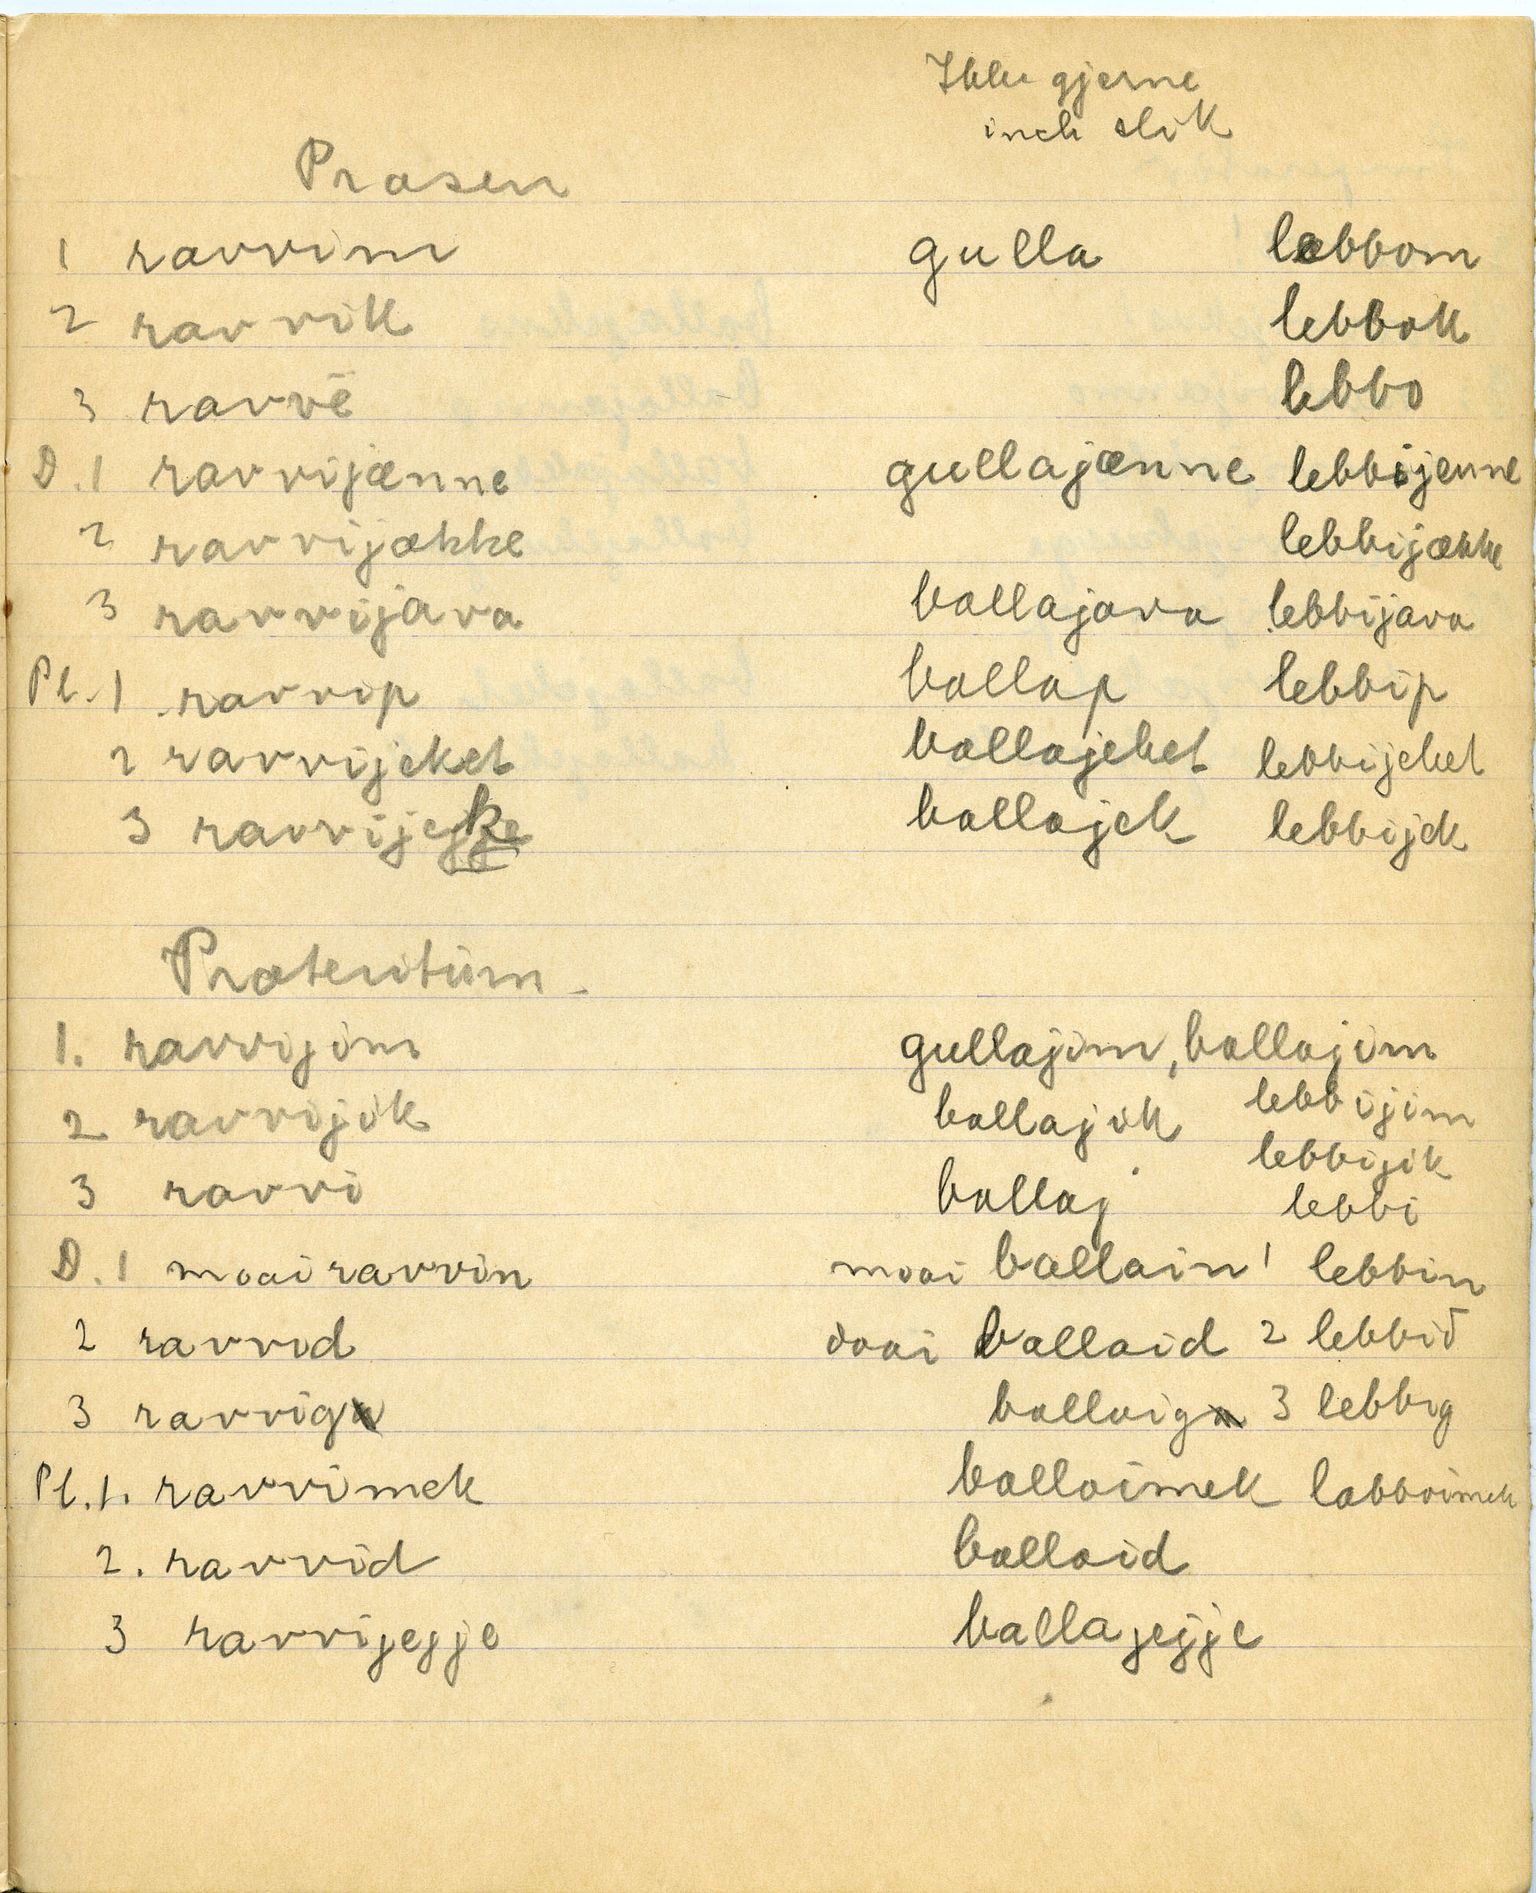 Ikke gjerne
slik
Præsen
1 ravvim gulla lebbom
2 ravvik lebbok
3 ravvē lebbo
D. 1 ravvijænne gullajænne lebbijenne
2 ravvijække lebbijække
3 ravvijava ballajava lebbijava
Pl. 1 ravvip ballap lebbip
2 ravvijeket ballajeket lebbijeket
3 ballajek lebbijek
Præteritum
1. ravvijim gullajim, ballajim
lebbijim
2 ravvijik ballajik
lebbijik
3 ravvi ballaj lebbi
D. 1 moai ravvin moai ballain 1 lebbin
2 ravvid doai ballaid 2 lebbid
3 ravvig ballaig 3 lebbig
Pl. 1. ravvimek ballaimek labboimek
2. ravvid ballaid
3 ravvijejje ballajejje